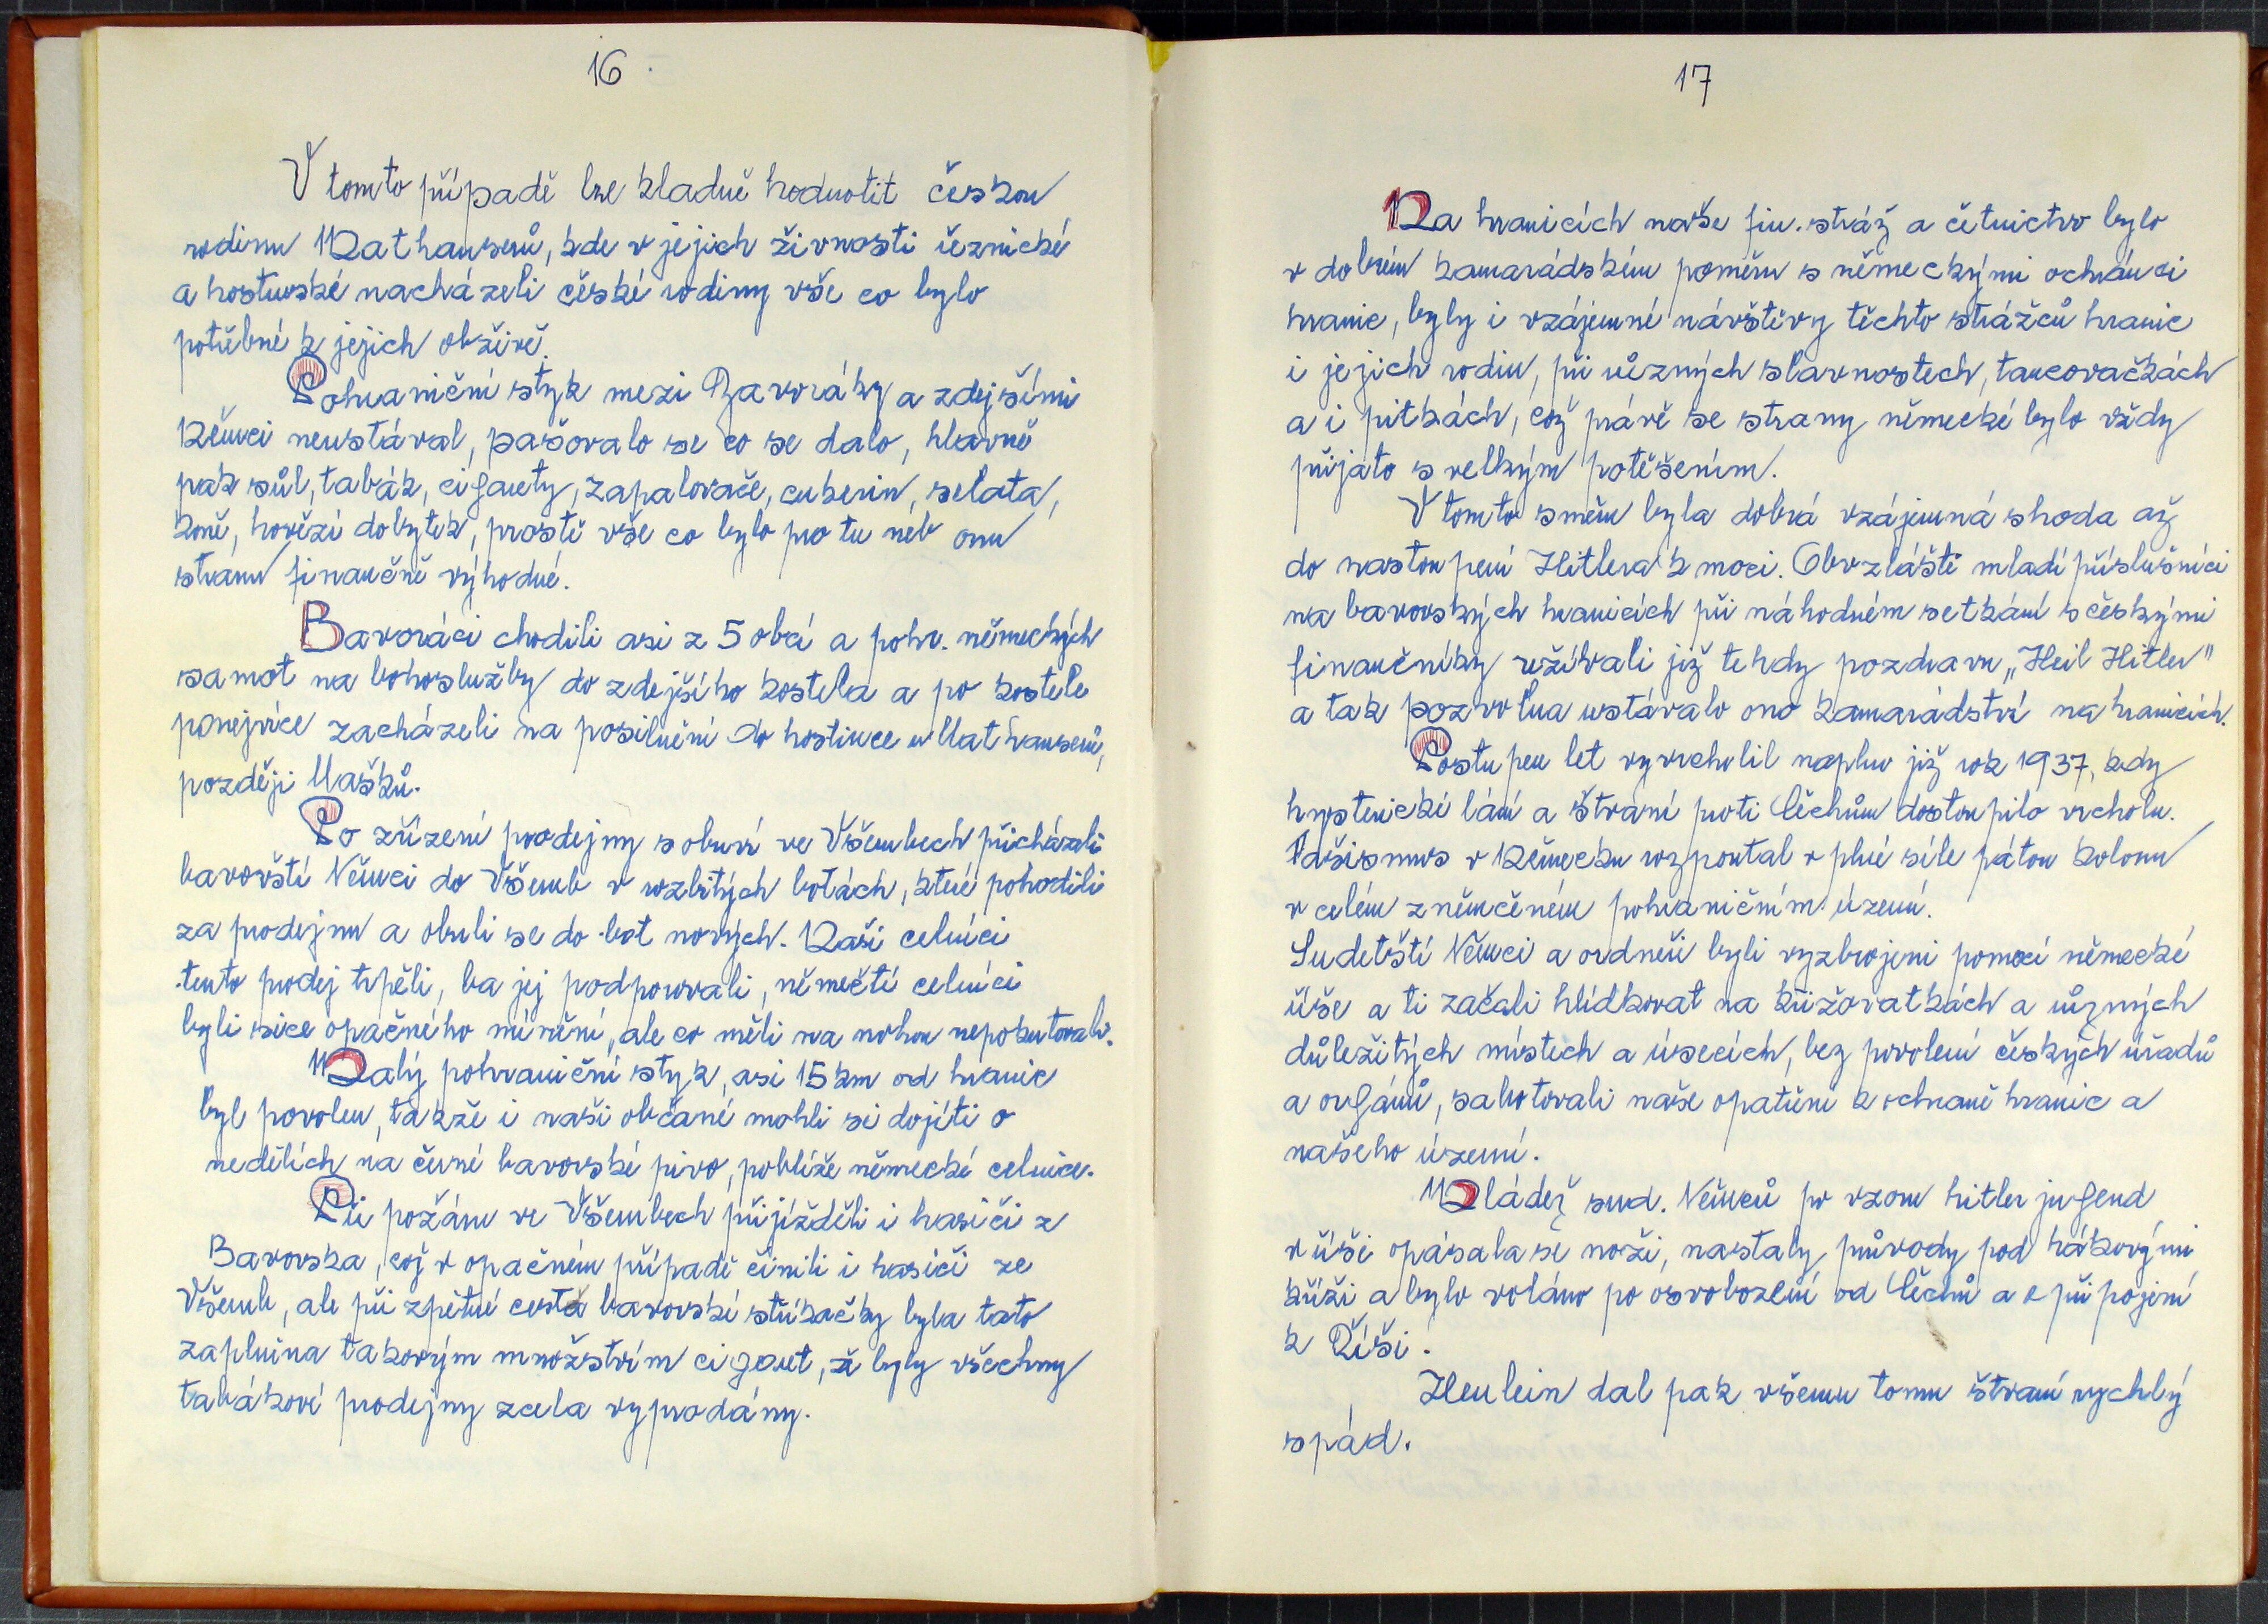 16
V tomto případě lze kladně hodnotit českou
rodinu Mathauserů, kde v jejich živnosti řeznické
a hostinské nacházeli české rodiny vše co bylo
potřebné k jejich obživě.
Pohraniční styk mezi Bavoráky a zdejšími
Němci neustával, pašovalo se co se dalo, hlavně
pak sůl, tabák, cigarety, zapalovače, cukerin, selata,
koně, hovězí dobytek, prostě vše co bylo pro tu neb onu
stranu finančně výhodné.
Bavoráci chodili asi z 5 obcí a pohr. německých
samot na bohoslužby do zdejšího kostela a po kostele
ponejvíce zacházeli na posilnění do hostince u Mathauserů,
později Mašků.
Po zřízení prodejny s obuví ve Všerubech přicházeli
bavorští Němci do Všerub v rozbitých botách, které pohodili
za prodejnu a obuli se do bot nových. Naši celníci
tento prodej trpěli, ba jej podporovali, němečtí celníci
byli sice opačného mínění, ale co měli na nohou nepokutovali.
Malý pohraniční styk, asi 15 km od hranic
byl povolen, takže i naši občané mohli si dojíti o
nedělích na černé bavorské pivo, poblíže německé celnice.
Při požáru ve Všerubech přijížděli i hasiči z
Bavorska, což v opačném případě činili i hasiči ze
Všerub, ale při zpětné cestě bavorské stříkačky byla tato
zaplněna takovým množstvím cigaret, že byly všechny
tabákové prodejny zcela vyprodány.
17
Na hranicích naše fin. stráž a četnictvo bylo
v dobrém kamarádském poměru s německými ochránci
hranic, byly i vzájemné návštěvy těchto strážců hranic
i jejich rodin, při různých slavnostech, tancovačkách
a i pitkách, což právě se strany německé bylo vždy
přijato s velkým potěšením.
V tomto směru byla dobrá vzájemná shoda až
do nastoupení Hitlera k moci. Obvzláště mladí příslušníci
na bavorských hranicích při náhodném setkání s českými
finančníky užívali již tehdy pozdravu „Heil Hitler"
a tak pozvolna ustávalo ono kamarádství na hranicích.
Postupem let vyvrcholil naplno již rok 1937, kdy
hysterické lání a štvaní proti Čechům dostoupilo vrcholu.
Fašismus v Německu rozpoutal v plné síle pátou kolonu
v celém zněmčeném pohraničním území.
Sudetští Němci a ordneři byli vyzbrojeni pomocí německé
říše a ti začali hlídkovat na křižovatkách a různých
důležitých místech a úsecích, bez povolení českých úřadů
a orgánů, sabotovali naše opatření k ochraně hranic a
našeho území.
Mládež sud. Němců po vzoru hitler jugend
v říši opásala se noži, nastaly průvody pod hákovými
kříži a bylo voláno po osvobození od Čechů a o připojení
k Říši.
Henlein dal pak všemu tomu štvaní rychlý
spád.